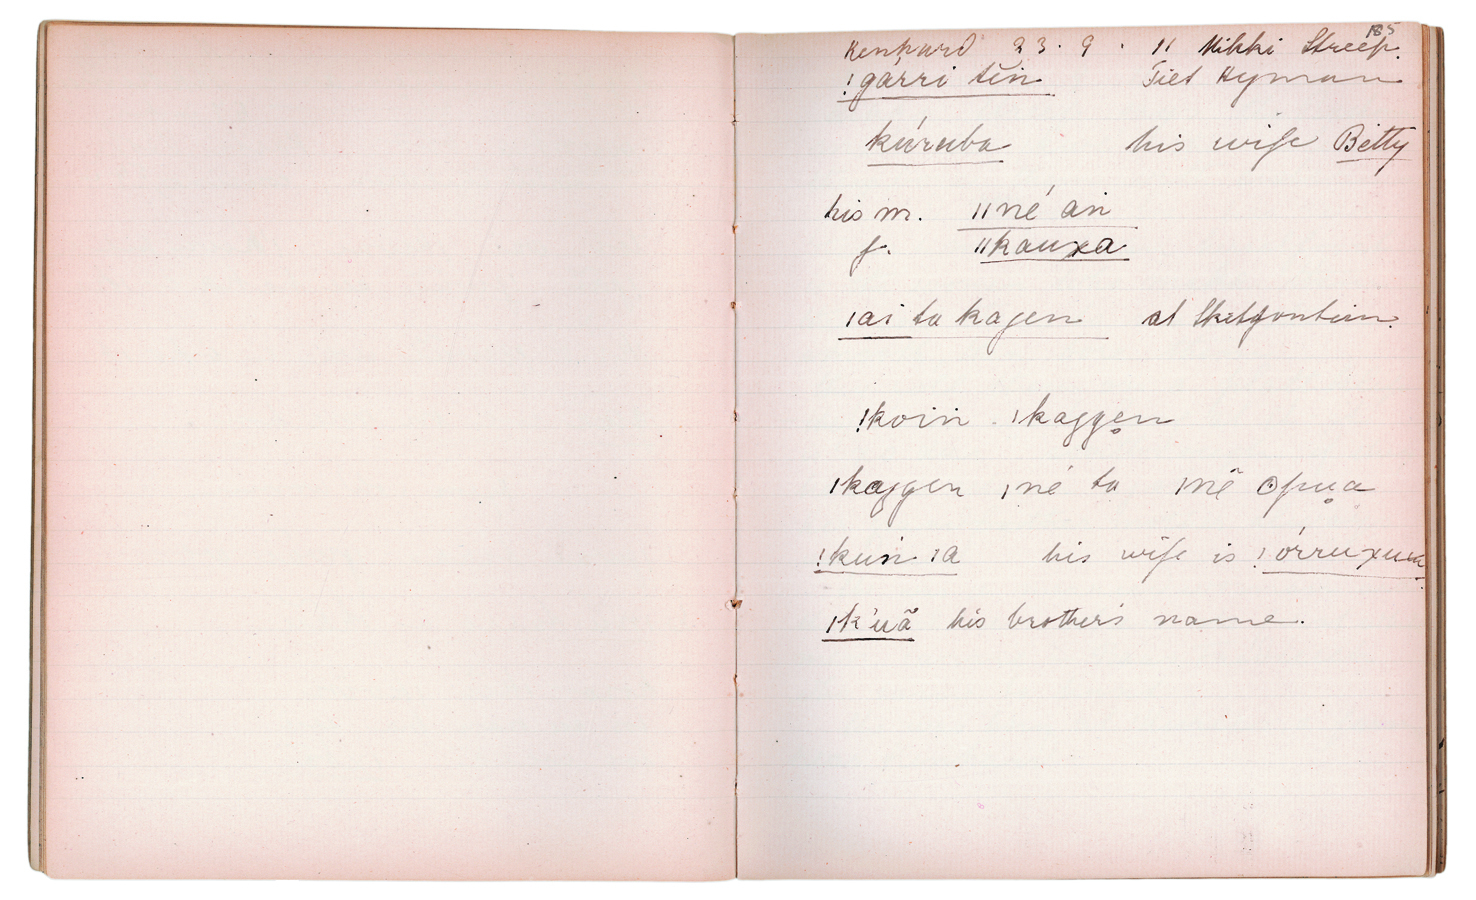 185
Kenhard 23.9.11 Mikki Streep.
!garri tĕn Piet Hyman
kúruba his wife Betty
his m. ǁné an
f. ǁkauxa
ǀai ta kagen at Skitfontein.
!koin - ǀkaggen
ǀkaggen ǀné ta ǀnĕ ʘpua
!kuń ǀa his wife is !órruxu
ǀk'uã his brother's name.